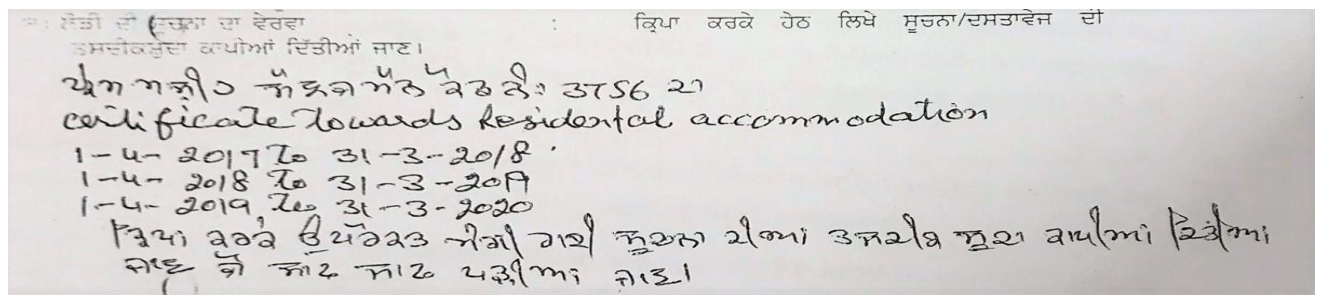 ਲੋੜੀ ਦੀ ਸੂਚਨਾ ਦਾ ਵੇਰਵਾ : ਕ੍ਰਿਪਾ ਕਰਕੇ ਹੇਠ ਲਿਖੇ ਸੂਚਨਾ/ਦਸਤਾਵੇਜ ਦੀ
ਤਸਦੀਕਸ਼ੁਦਾ ਕਾਪੀਆਂ ਦਿੱਤੀਆਂ ਜਾਣ।
ਨੰ: 3756 ਦਾ
certificate Towards Residental accommodation
1-4-2017 To 31-3-2018
1-4-2018 To 31-3-2019
1-4-2019 To 31-3-2020
ਕ੍ਰਿਪਾ ਕਰਕੇ ਉਪਰੋਕਤ ਮੰਗੀ ਗਈ ਸੂਚਨਾ ਦੀਆਂ ਤਸਦੀਕ ਸ਼ੁਦਾ ਕਾਪੀਆਂ ਦਿੱਤੀਆਂ
ਜਾਣ ਜੋ ਸਾਫ ਸਾਫ ਪੜ੍ਹੀਆਂ ਜਾਣ।